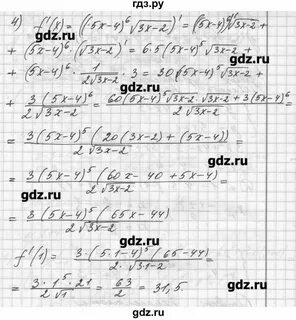 gdz.ru
4) f'(x) = ((5x-4)⁶ √3x-2)' = ((5x-4)⁶)' √3x-2 +
+ (5x-4)⁶ · (√3x-2)' = 6·5(5x-4)⁵ √3x-2 +
gdz.ru gdz.ru
+ (5x-4)⁶ · 1/(2√3x-2) · 3 = 30(5x-4)⁵ √3x-2 +
gdz.ru
+ 3(5x-4)⁶/(2√3x-2) = (60(5x-4)⁵ √3x-2 · √3x-2 + 3(5x-4)⁶)/(2√3x-2) =
gdz.ru gdz.ru
= 3(5x-4)⁵ (20(3x-2) + (5x-4))/(2√3x-2) =
gdz.ru
= 3(5x-4)⁵ (60x-40+5x-4)/(2√3x-2) =
gdz.ru gdz.ru
= 3(5x-4)⁵ (65x-44)/(2√3x-2)
gdz.ru
f'(1) = 3·(5·1-4)⁵ (65-44)/(2·√3·1-2) =
gdz.ru gdz.ru
= 3·1⁵·21/(2√1) = 63/2 = 31,5
gdz.ru